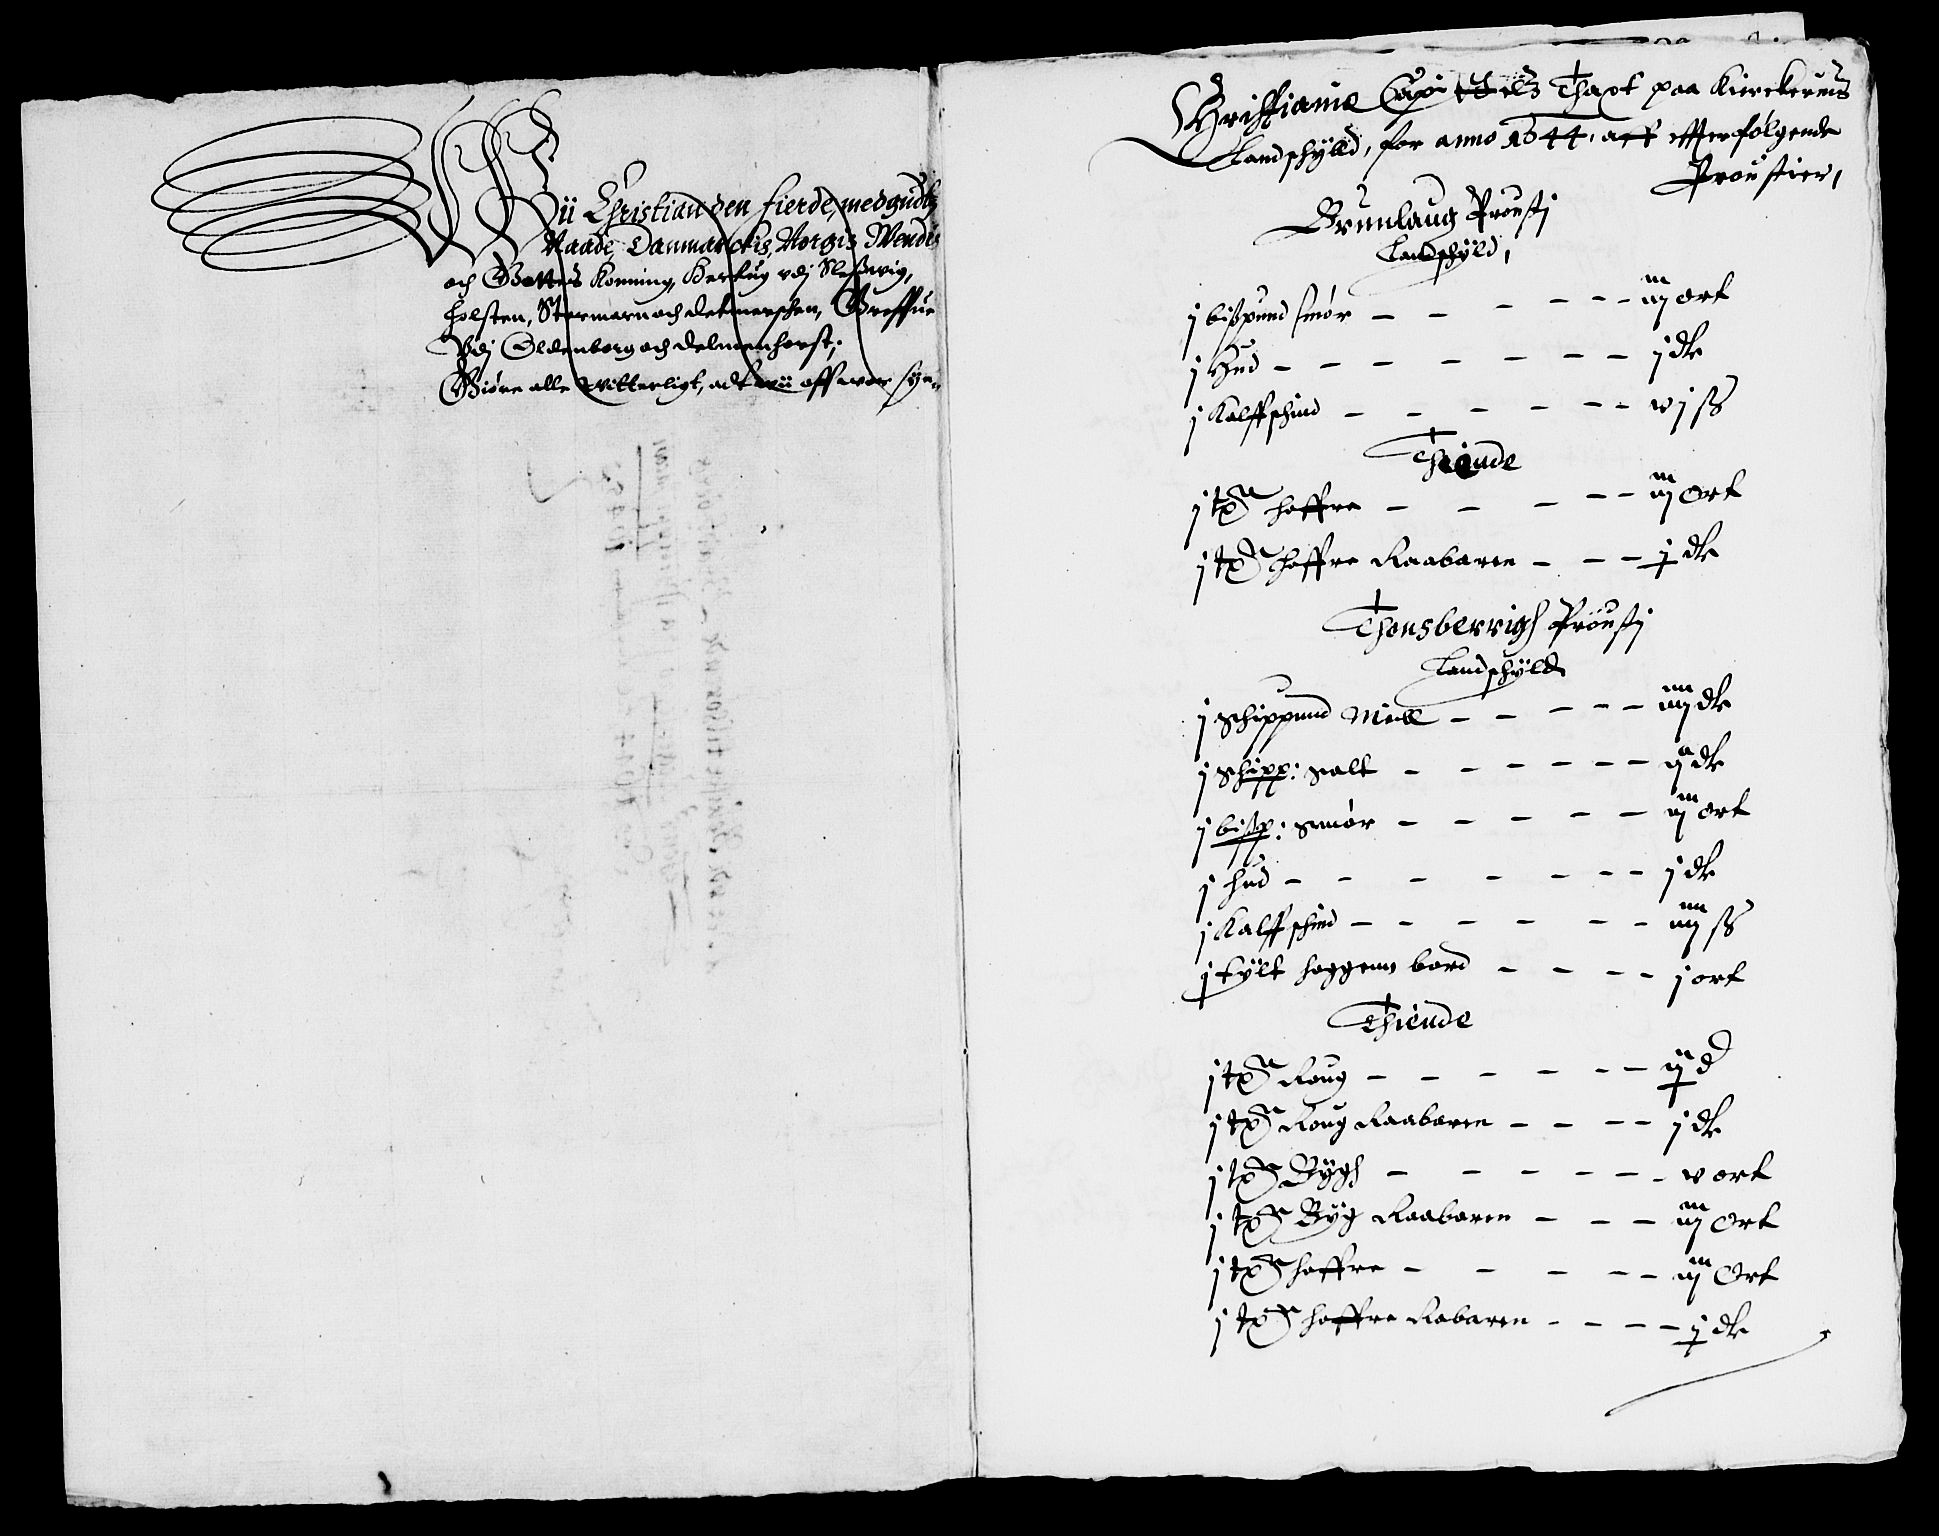 Wii Christian den Fierde, med gudtz
Naade, Danmarckis, Norgis Wendis
och Gottes Konning, Hertug vdj Sleswig,
Holsten, Stormarn och detmerschen, Greffue
Vdj Oldenborg och delmenhorst;
Giöre alle witterligt, adt wii aff wor syn-
Christianie Capittels Thaxt paa Kierckernis
Landschylld, for anno 1644, aff effterfølgende
Proustier,
Brunlaug Proustj
Landschyld,
j bispund smør — — — — — iij ort
j Hud — — — — — — — j dlr
j Kalffschind — — — — — — vj ss
Thiende
j tøn haffre — — — — — iij Ort
j tøn haffre Raabaren — — — j dlr
Thonsberrigh Proustj
Landschyld
j Schippund Miell — — — — — iiij dlr
j Schipp: Salt — — — — — — ij dlr
j bisp: Smør — — — — — iij ort
j hud — — — — — — — j dlr
j Kalffschind — — — — — — iiij ss
j tylt haggenn bord — — — — j ort
Thiende
j tøn Roug — — — — — — ij d
j tøn Roug Raabaren — — — — j dlr
j tøn Bygh — — — — — — v ort
j tøn Byg Raabaren — — — iij Ort
j tøn haffre — — — — — iij Ort
j tøn haffre Rabaren — — — — j dlr